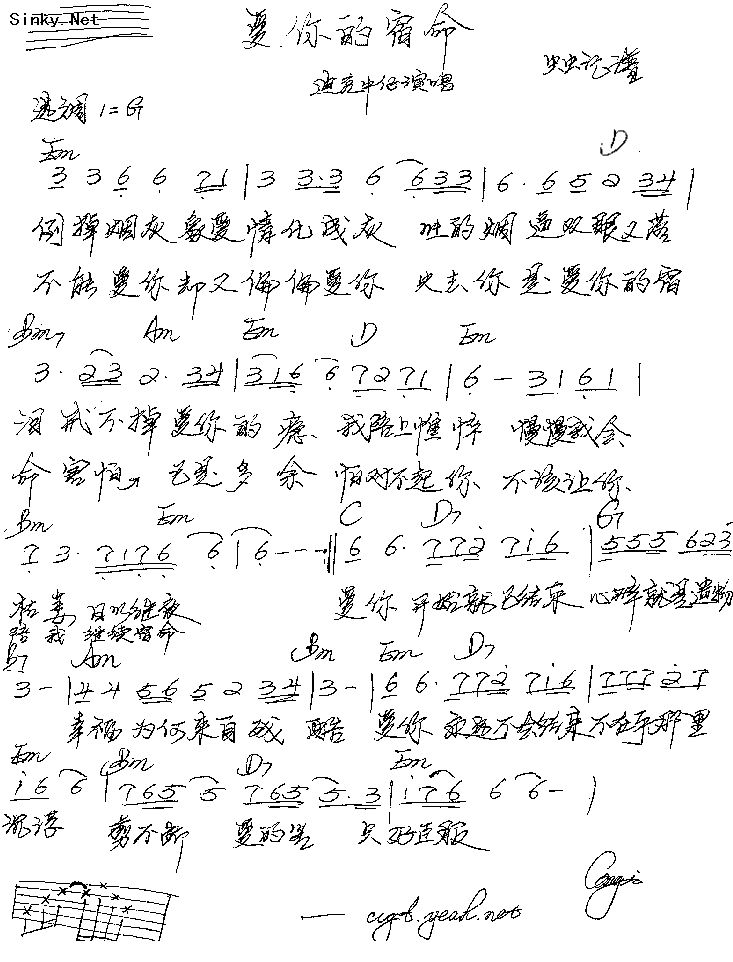 Sinky.Net
爱你的宿命
迪克牛仔演唱
虫虫记谱
选调 1=G
Em D
3 3 6 6 71 | 3 3·3 6 633 | 6·6 5 2 34 |
倒掉烟灰 象爱情化成灰 的烟 双眼又落
不能爱你却又偏偏爱你 失去你是爱你的宿
Bm7 Am Em D Em
3· 23 2· 34 | 316 6 7271 | 6 - 31 61 |
泪 戒不掉爱你的瘾 我陪上憔悴 慢慢我会
命 害怕 已是多余 怕对不起你 不该让你
Bm Em C D7 G7
7 3· 7176 6 | 6 - - - :‖ 6 6· 772 716 | 555 623
枯萎 日以继夜 爱你 开始就已结束 心碎就是遗物
陪我 继续宿命
B7 Am Bm Em D7
3 - | 44 56 5 2 34 | 3 - | 6 6· 772 716 | 777 27
幸福为何来自残酷 爱你 永远不会结束 不在乎那里
Em Bm D7 Em
i 6 6 | 765 5 765 5·3 | i76 6 6 - |
沉浮 剪不断 爱的 只好臣服
— cygb.yeah.net